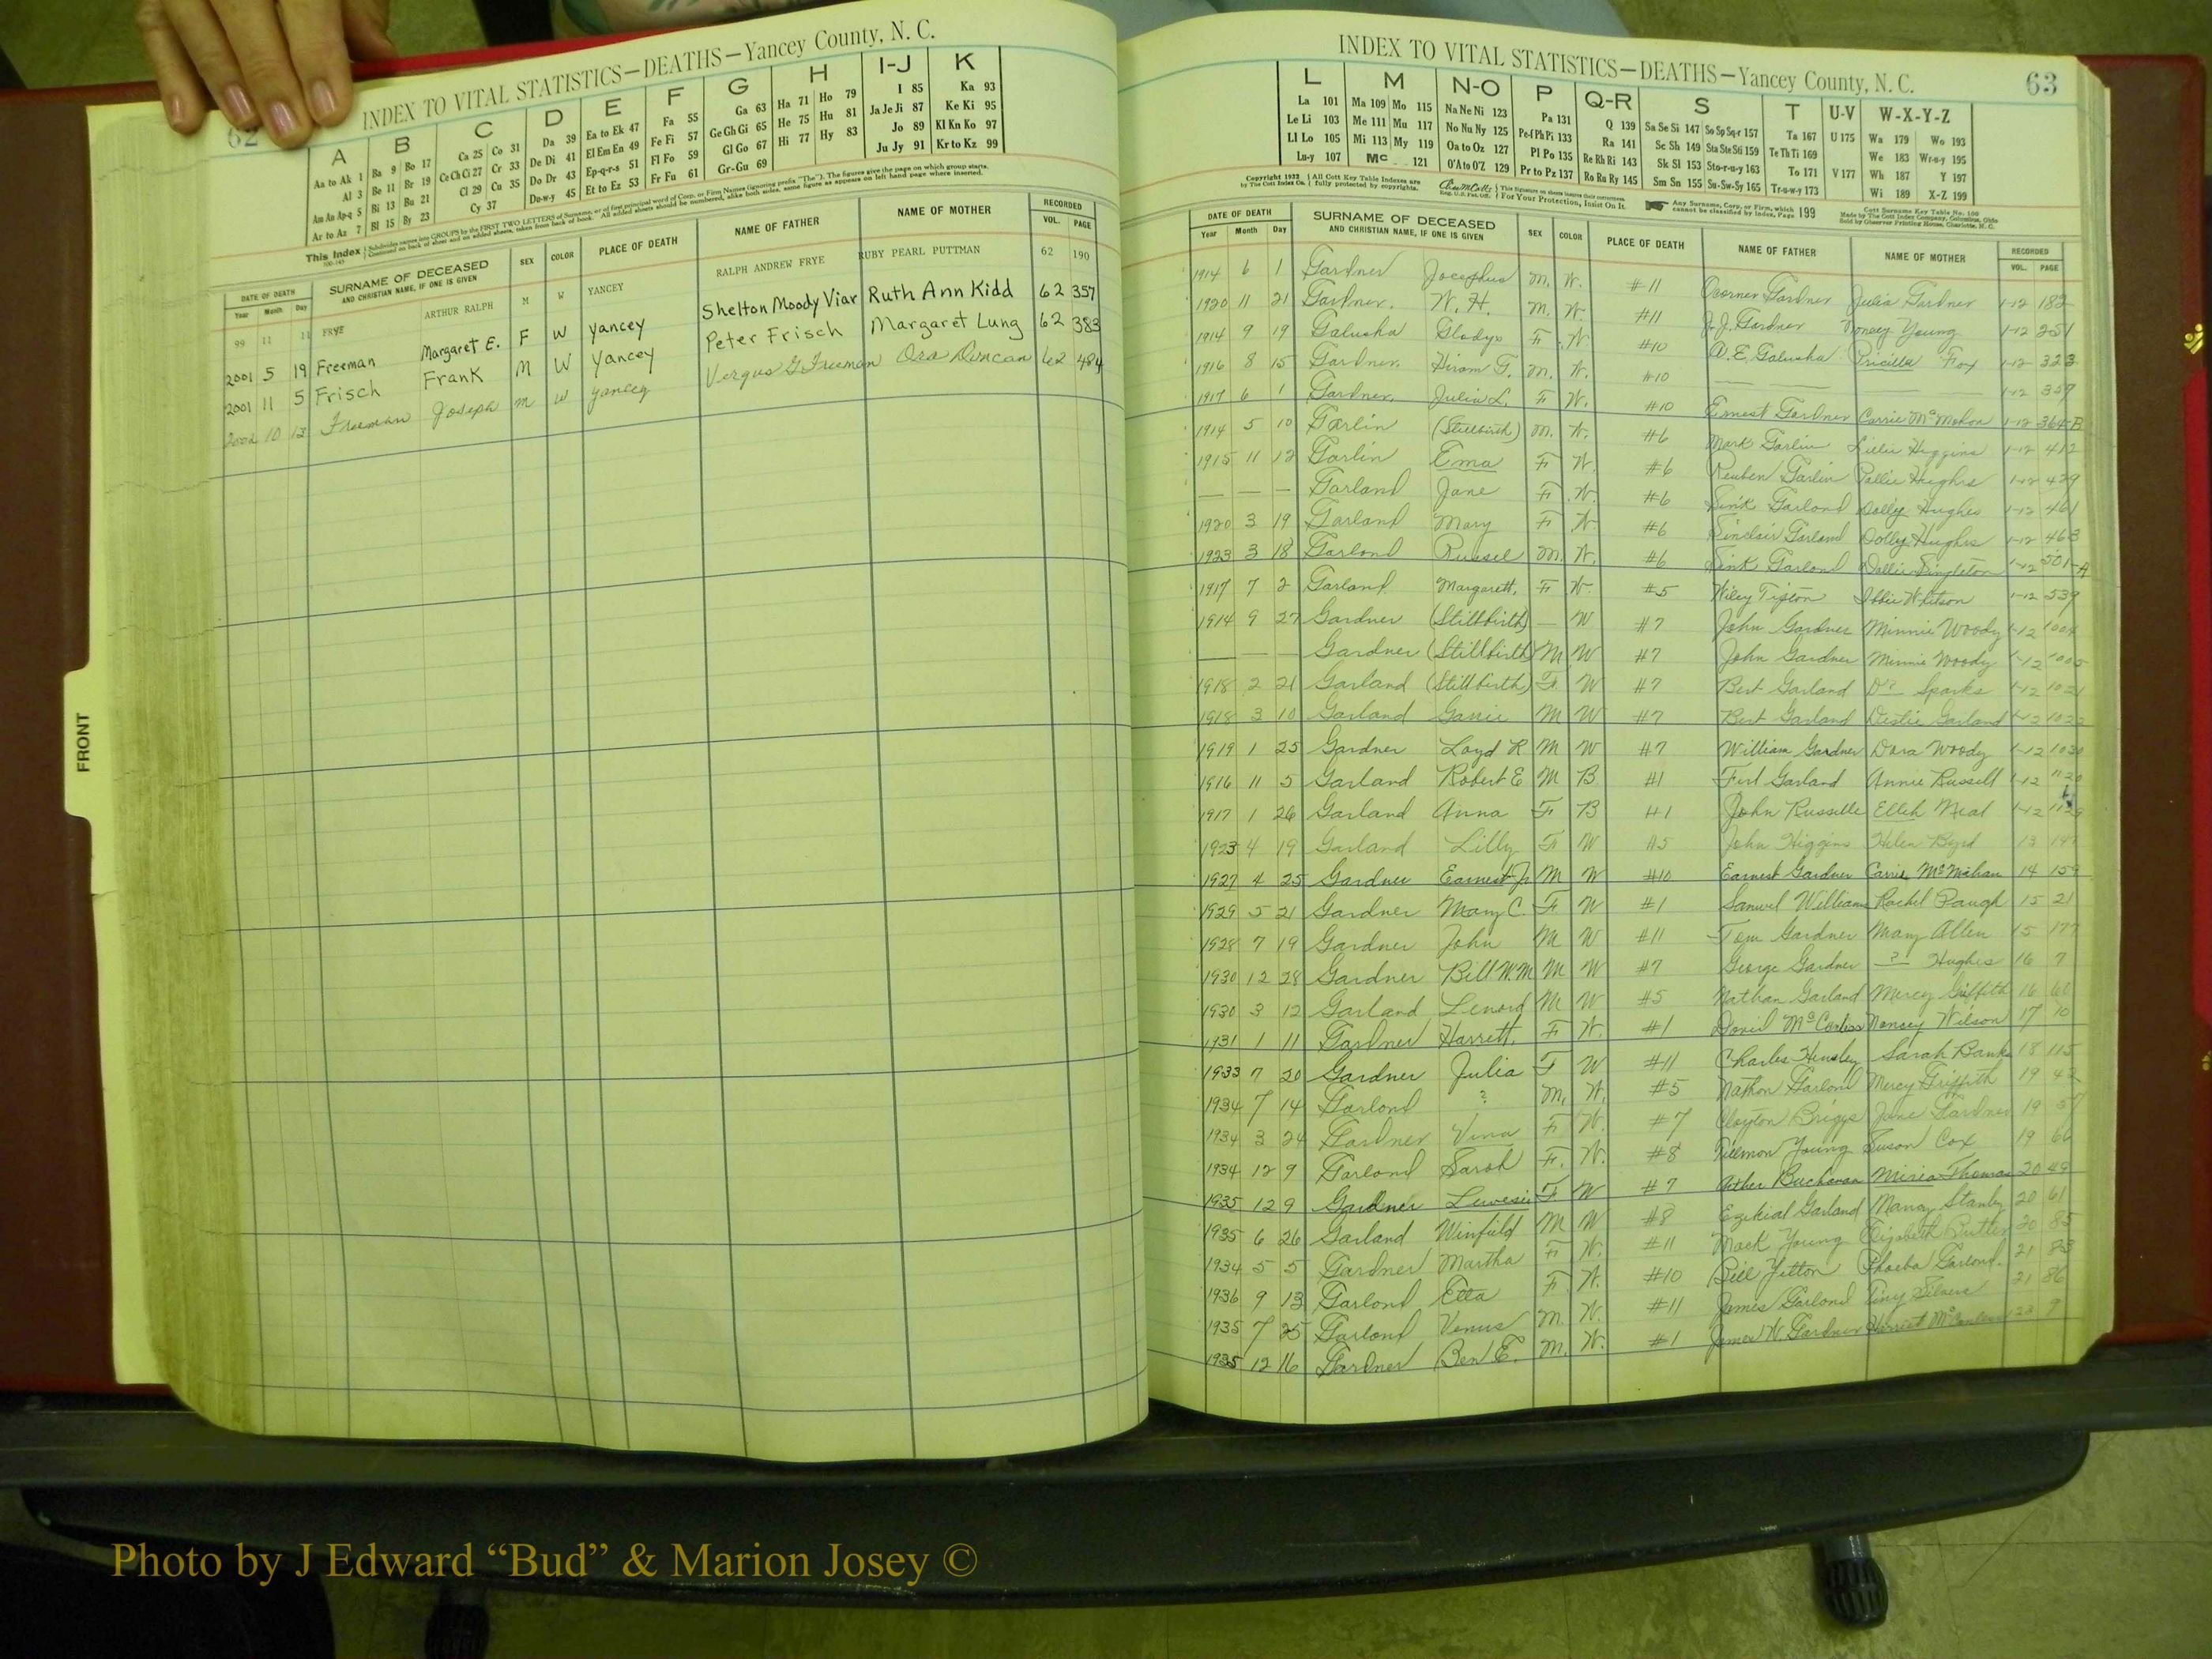 62
INDEX TO VITAL STATISTICS—DEATHS—Yancey County, N. C.
A B C D E F G H I-J K
Aa to Ak 1 Ba 9 Bo 17 Ca 25 Co 31 Da 39 Ea to Ek 47 Fa 55 Ga 63 Ha 71 Ho 79 I 85 Ka 93
Al 3 Be 11 Br 19 Ce Ch Ci 27 Cr 33 De Di 41 El Em En 49 Fe Fi 57 Ge Gh Gi 65 He 75 Hu 81 Ja Je Ji 87 Ke Ki 95
Am An Ap-q 5 Bi 13 Bu 21 Cl 29 Cu 35 Do Dr 43 Ep-q-r-s 51 Fl Fo 59 Gl Go 67 Hi 77 Hy 83 Jo 89 Kl Kn Ko 97
Ar to Az 7 Bl 15 By 23 Cy 37 Du-w-y 45 Et to Ez 53 Fr Fu 61 Gr-Gu 69 Ju Jy 91 Kr to Kz 99
This Index
DATE OF DEATH SURNAME OF DECEASED AND CHRISTIAN NAME, IF ONE IS GIVEN SEX COLOR PLACE OF DEATH NAME OF FATHER NAME OF MOTHER RECORDED
Year Month Day VOL. PAGE
99 11 11 FRYE ARTHUR RALPH M W YANCEY RALPH ANDREW FRYE RUBY PEARL PUTTMAN 62 190
2001 5 19 Freeman Margaret E. F W Yancey Shelton Moody Viar Ruth Ann Kidd 62 357
2001 11 5 Frisch Frank M W Yancey Peter Frisch Margaret Lung 62 383
2002 10 13 Freeman Joseph M W Yancey Vergus G Freeman Ora Duncan 62 484
FRONT
INDEX TO VITAL STATISTICS—DEATHS—Yancey County, N. C. 63
L M N-O P Q-R S T U-V W-X-Y-Z
La 101 Ma 109 Mo 115 Na Ne Ni 123 Pa 131 Q 139 Sa Se Si 147 So Sp Sq-r 157 Ta 167 U 175 Wa 179 Wo 193
Le Li 103 Me 111 Mu 117 No Nu Ny 125 Pe-f Ph Pi 133 Ra 141 Sc Sh 149 Sta Ste Sti 159 Te Th Ti 169 We 183 Wr-u-y 195
Ll Lo 105 Mi 113 My 119 Oa to Oz 127 Pl Po 135 Re Rh Ri 143 Sk Sl 153 Sto-r-u-y 163 To 171 V 177 Wh 187 Y 197
Lu-y 107 Mc 121 O'A to O'Z 129 Pr to Pz 137 Ro Ru Ry 145 Sm Sn 155 Su-Sw-Sy 165 Tr-u-w-y 173 Wi 189 X-Z 199
Copyright 1932 by The Cott Index Co. All Cott Key Table Indexes are fully protected by copyrights. For Your Protection, Insist On It. Any Surname, Corp. or Firm, which cannot be classified by Index, Page 199
DATE OF DEATH SURNAME OF DECEASED AND CHRISTIAN NAME, IF ONE IS GIVEN SEX COLOR PLACE OF DEATH NAME OF FATHER NAME OF MOTHER RECORDED
Year Month Day VOL. PAGE
1914 6 1 Gardner Josephus M. W. #11 Gardner Julia Gardner 1-12 182
1920 11 21 Gardner. W. H. M. W. #11 J. J. Gardner Young 1-12 251
1914 9 19 Galusha Gladys F. W. #10 Galusha Pricilla Fox 1-12 323
1916 8 15 Gardner. Hiram M. W. #10 — — 1-12 359
1917 6 1 Gardner. Julia L. F. W. #10 Ernest Gardner Carrie McMahon 1-12 364-B
1914 5 10 Garlin (Stillbirth) M. W. #6 Mark Garlin Lillie Higgins 1-12 412
1915 11 12 Garlin Ema F W. #6 Reuben Garlin Hughes 1-12 429
— — — Garland Jane F. W. #6 Sink Garland Dolly Hughes 1-12 461
1920 3 19 Garland Mary F W #6 Sinclair Garland Dolly Hughes 1-12 463
1923 3 18 Garland Russel M. W. #6 Sink Garland Dollie Singleton 1-12 501-A
1917 7 2 Garland Margarett. F W. #5 Wiley Tipton Whitson 1-12 539
1914 9 27 Gardner (Stillbirth) — W #7 John Gardner Minnie Woody 1-12 1004
— — — Gardner (Stillbirth) M W #7 John Gardner Minnie Woody 1-12 1005
1918 2 21 Garland (Stillbirth) F W #7 Bert Garland Sparks 1-12 1021
1918 3 10 Garland M W #7 Bert Garland Garland 1-12 1022
1919 1 25 Gardner Loyd R M W #7 William Gardner Dora Woody 1-12 1030
1916 11 5 Garland Robert E M B #1 Garland Annie Russell 1-12
1917 1 26 Garland Anna F B #1 John Russelle Ellen Neal 1-12
1923 4 19 Garland Lilly F W #5 John Higgins Helen Byrd 13
1927 4 25 Gardner Earnest Jr M W #10 Earnest Gardner Carrie McMahan 14 159
1929 5 21 Gardner Mary C. F W #1 Samuel Williams Rachel Paugh 15 21
1928 7 19 Gardner John M W #11 Tom Gardner Mary Allen 15 177
1930 12 28 Gardner Bill W.M. M W #7 George Gardner ? Hughes 16 7
1930 3 12 Garland Lenord M W #5 Nathan Garland Mercy Griffith 16 60
1931 1 11 Gardner Harrett. F. W. #1 David Wilson 17 10
1933 7 20 Gardner Julia F W #11 Charles Hensley Sarah Banks 18 115
1934 7 14 Garland ? M. W. #5 Nathan Garland Mercy Griffith 19 42
1934 3 24 Gardner Vina F. W. #7 Clayton Briggs Jane Gardner 19 57
1934 12 9 Garland Sarah F. W. #8 Young Susan Cox 19 66
1935 12 9 Gardner F W #7 Arther Buchanan Thomas 20 49
1935 6 26 Garland Winfield M W #8 Ezekial Garland Nancy Stanly 20 61
1934 5 5 Gardner Martha F. W. #11 Mack Young Elizabeth 20 85
1936 9 13 Garland Etta F. W. #10 Bill Phoeba Garland. 21 83
1935 7 25 Garland Venus M. W. #11 James Garland Tiny 21 86
1935 12 16 Gardner Ben E. M. W. #1 James W. Gardner Harriet 23 9
Photo by J Edward “Bud” & Marion Josey ©